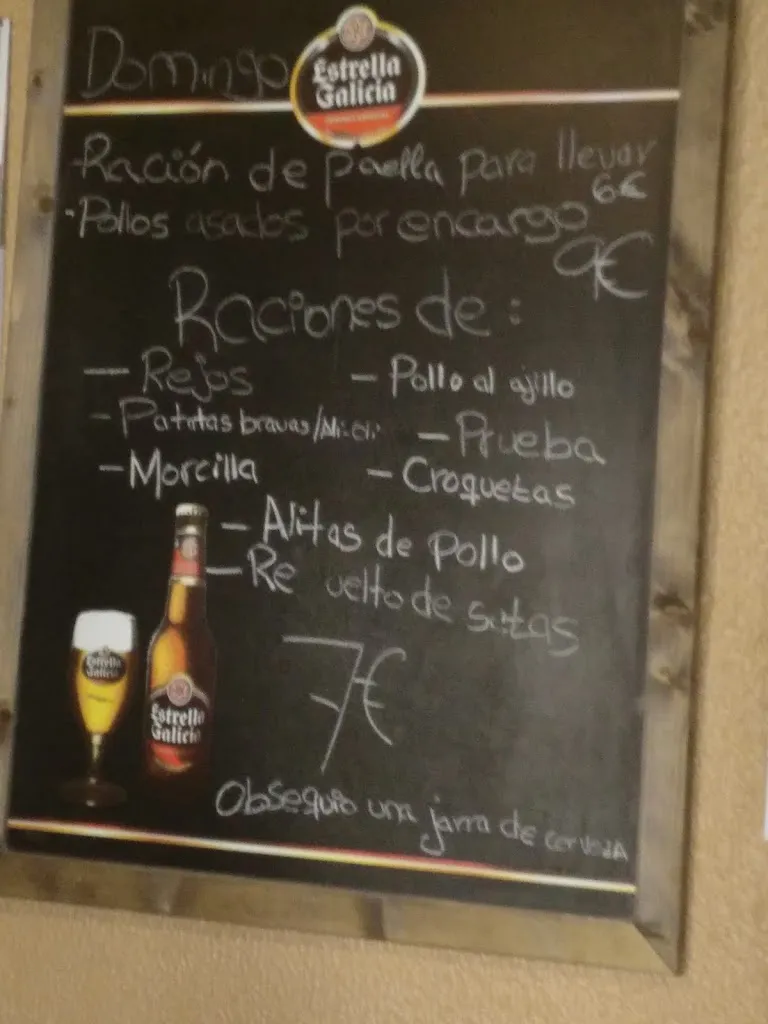 Domingo
Estrella
Galicia
-Ración de paella para llevar
6€
·Pollos asados por encargo
9€
Raciones de:
— Rejos
— Pollo al ajillo
- Patatas bravas/
— Prueba
- Morcilla
- Croquetas
- Alitas de pollo
- Revuelto de setas
7€
Estrella
Galicia
Estrella
Galicia
Obsequio una jarra de cerveza